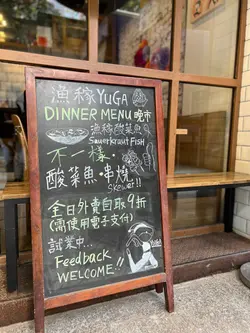 漁稼 YUGA
DINNER MENU 晚市
漁稼酸菜魚
Sauerkraut FISH
不一樣
酸菜魚·串燒
SKEWER!!
全日外賣自取9折
(需使用電子支付)
試業中...
Feedback
WELCOME...!!